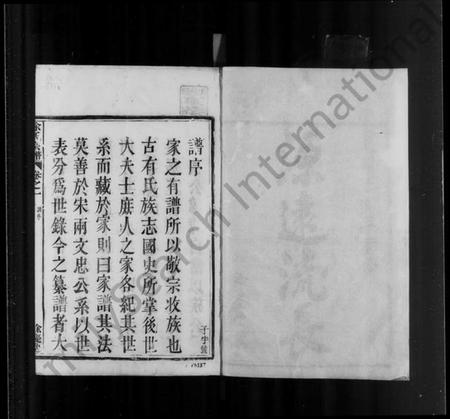 譜序
家之有譜所以敬宗收族也
古有氏族志國史所掌後世
大夫士庶人之家各紀其世
系而藏於家則曰家譜其法
莫善於宋兩文忠公系以世
表分爲世錄今之纂譜者大
卷之一
譜序
子字號
myAncestry International